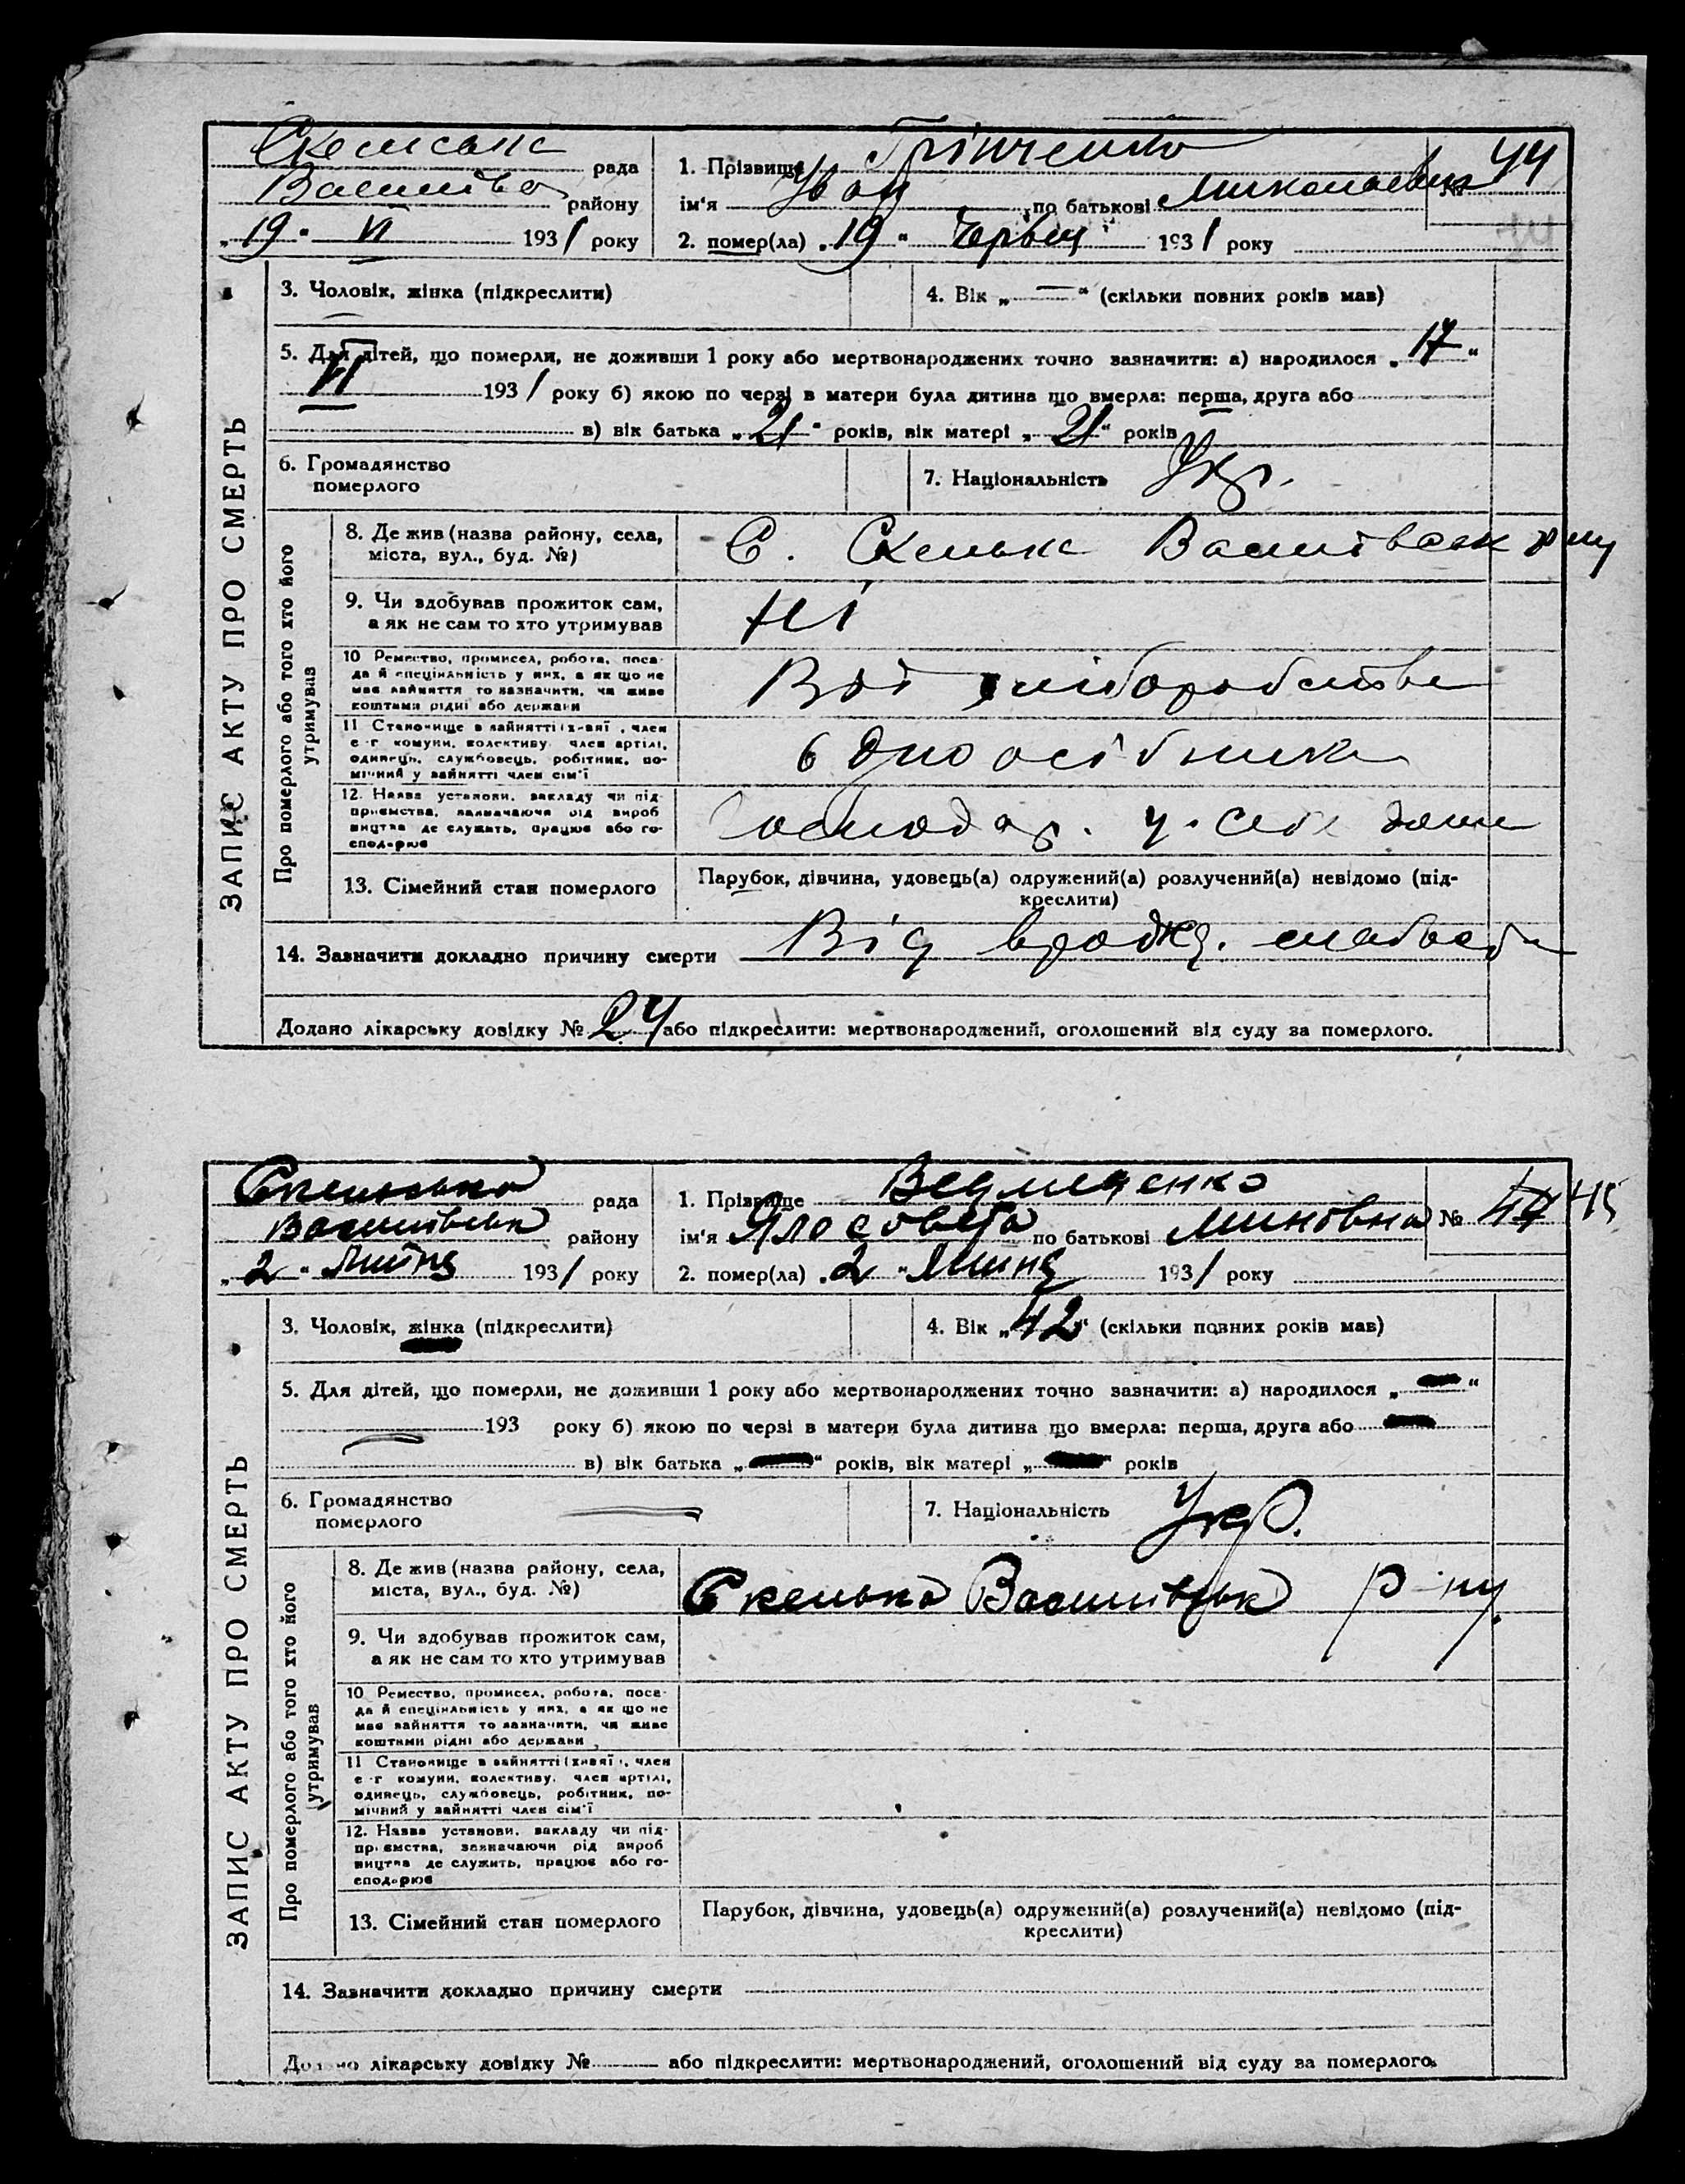 ЗАПИС АКТУ ПРО СМЕРТЬ
рада
1. Прізвище Грінченко
№ 44
Васильівс району
ім'я Іван по батькові Миколаевич
„19“ VI 1931 року
2. помер(ла) „19“ Червня 1931 року
3. Чоловік, жінка (підкреслити)
4. Вік „—“ (скільки повних років мав)
5. Для дітей, що померли, не доживши 1 року або мертвонароджених точно зазначити: а) народилося „17“
VI 1931 року б) якою по черзі в матери була дитина що вмерла: перша, друга або
в) вік батька „21“ років, вік матері „21“ років
6. Громадянство
померлого
7. Національність Укр.
Про померлого або того хто його
утримував
8. Де жив (назва району, села,
міста, вул., буд. №)
С. Скелька Васильівськ р-ну
9. Чи здобував прожиток сам,
а як не сам то хто утримував
Ні
10 Ремество, промисел, робота, поса-
да й спеціяльність у них, а як що не
має зайняття то зазначити, чи живе
коштами рідні або держави
Від хліборобства
11 Становище в зайнятті (х-вяї, член
с-г комуни, колективу, член артілі,
одинець, службовець, робітник, по-
мічний у зайнятті член сім'ї
одноосібника
12. Назва установи, закладу чи під-
приємства, зазначаючи рід вироб
ництва де служить, працює або го-
сподарює
Господар. у себе дома
13. Сімейний стан померлого
Парубок, дівчина, удовець(а) одружений(а) розлучений(а) невідомо (під-
креслити)
14. Зазначити докладно причину смерти Від врожд. слабости
Додано лікарську довідку № 24 або підкреслити: мертвонароджений, оголошений від суду за померлого.
ЗАПИС АКТУ ПРО СМЕРТЬ
Скельська рада
1. Прізвище
№ 45
Васильівськ району
ім'я по батькові
„2“ Липня 1931 року
2. помер(ла) „2“ Липня 1931 року
3. Чоловік, жінка (підкреслити)
4. Вік „42“ (скільки повних років мав)
5. Для дітей, що померли, не доживши 1 року або мертвонароджених точно зазначити: а) народилося „—“
193 року б) якою по черзі в матери була дитина що вмерла: перша, друга або —
в) вік батька „—“ років, вік матері „—“ років
6. Громадянство
померлого
7. Національність Укр.
Про померлого або того хто його
утримував
8. Де жив (назва району, села,
міста, вул., буд. №)
Скелька Васильівськ р-ну.
9. Чи здобував прожиток сам,
а як не сам то хто утримував
10 Ремество, промисел, робота, поса-
да й спеціяльність у них, а як що не
має зайняття то зазначити, чи живе
коштами рідні або держави
11 Становище в зайнятті (хазяї, член
с-г комуни, колективу, член артілі,
одинець, службовець, робітник, по-
мічний у зайнятті член сім'ї
12. Назва установи, закладу чи під-
приємства, зазначаючи рід вироб
ництва де служить, працює або го-
сподарює
13. Сімейний стан померлого
Парубок, дівчина, удовець(а) одружений(а) розлучений(а) невідомо (під-
креслити)
14. Зазначити докладно причину смерти
Додано лікарську довідку № або підкреслити: мертвонароджений, оголошений від суду за померлого.